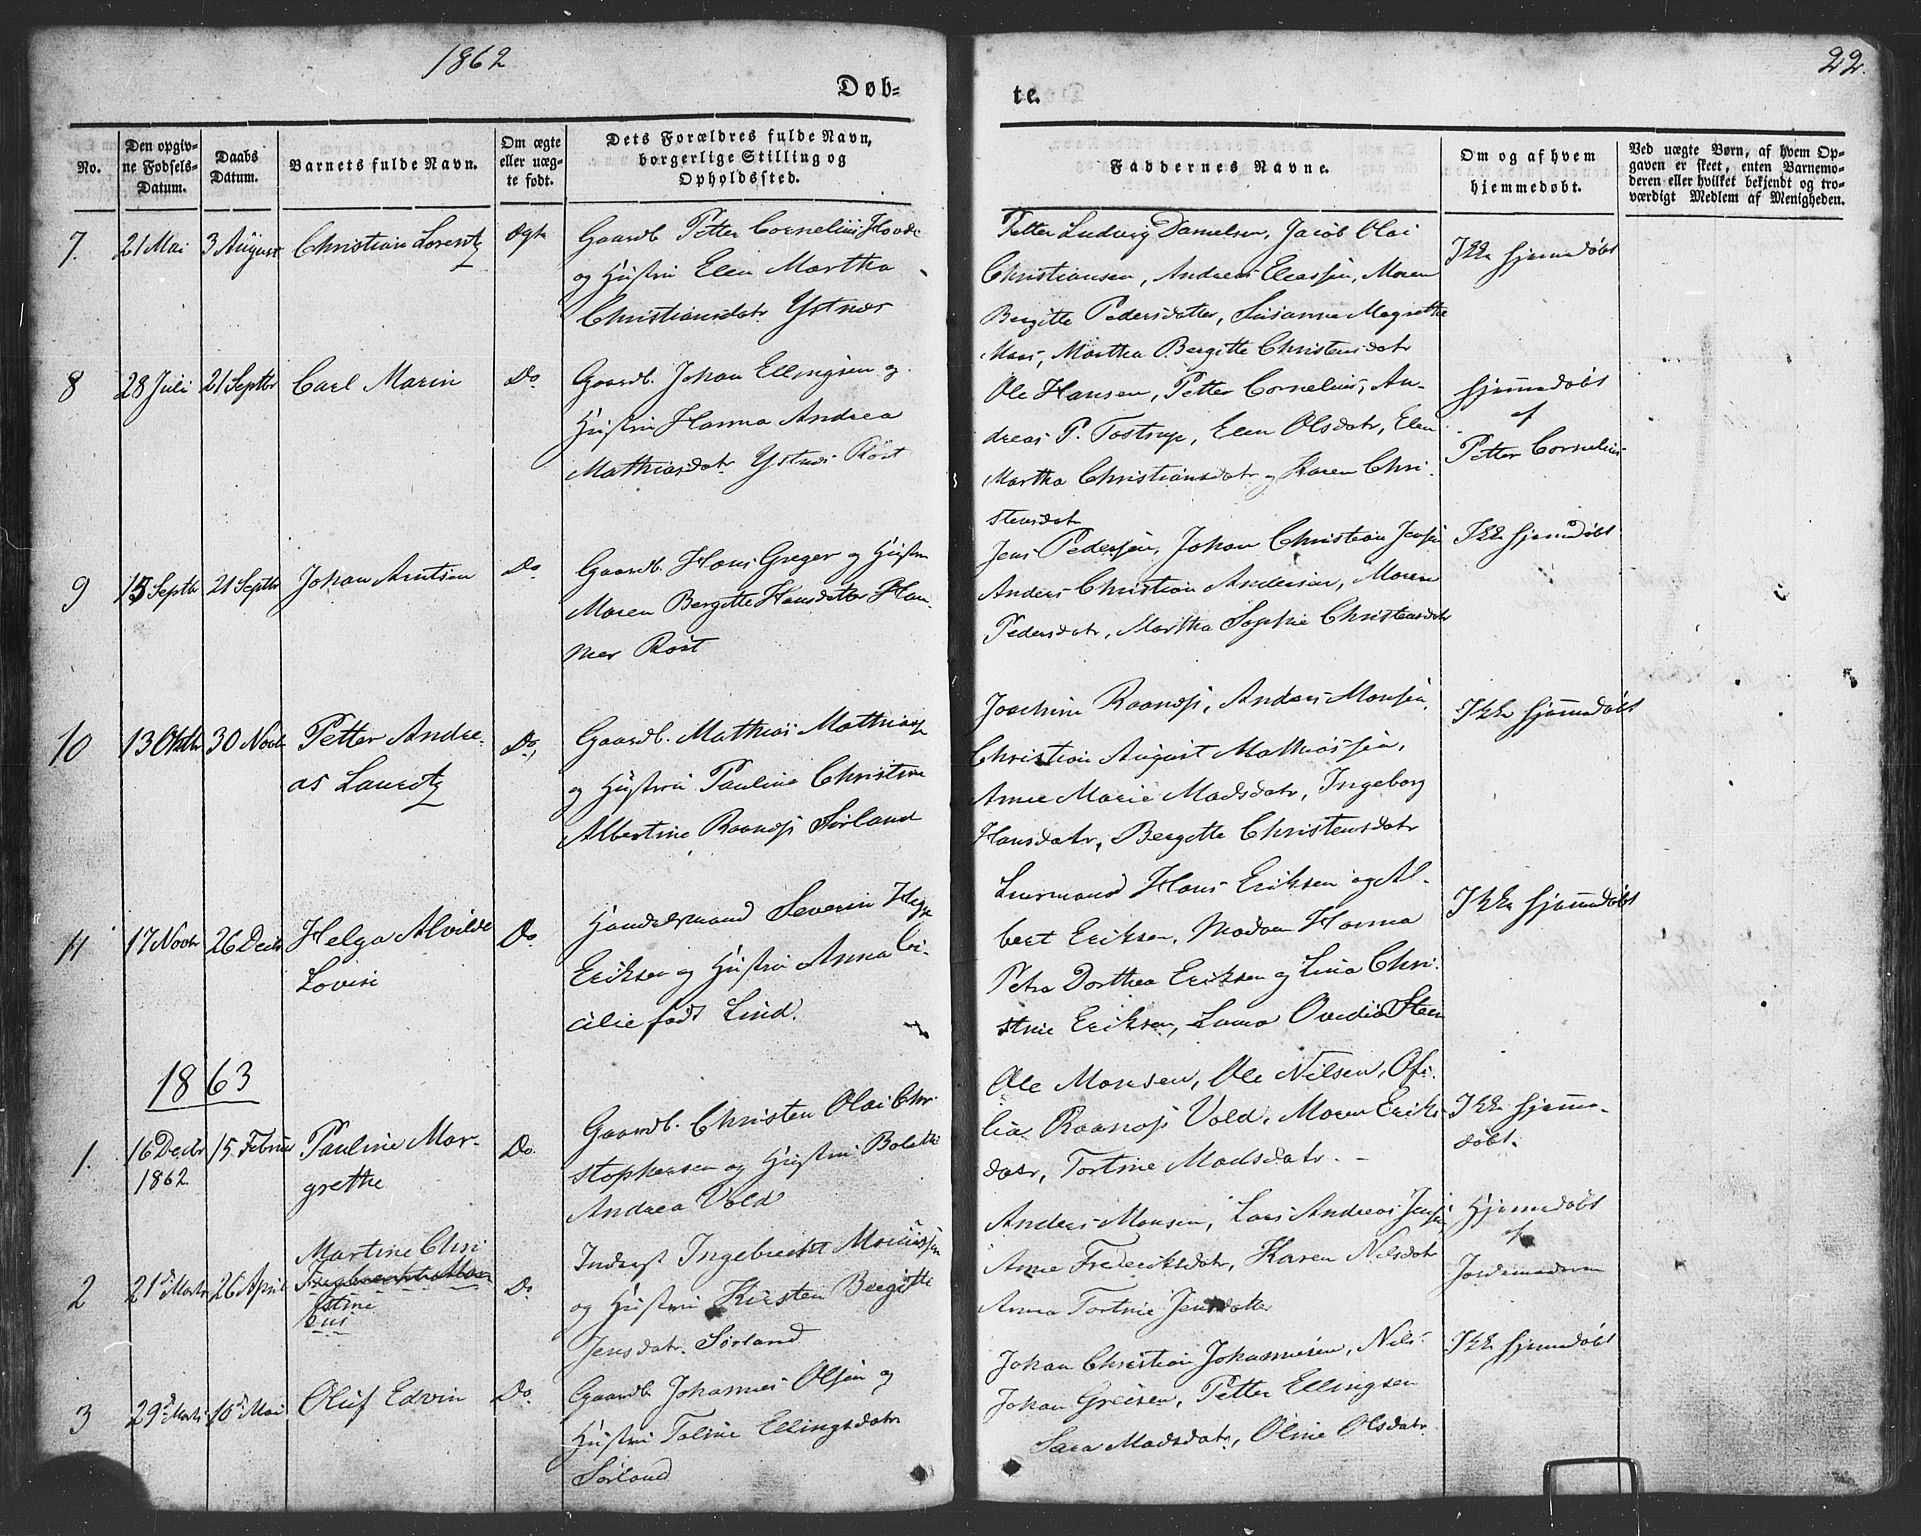 1862
22.
Døb-
te.
No.
Den opgiv-
ne Fødsels-
Datum.
Daabs
Datum.
Barnets fulde Navn.
Om ægte
eller uæg-
te født.
Dets Forældres fulde Navn,
borgerlige Stilling og
Opholdssted.
Faddernes Navne.
Om og af hvem
hjemmedøbt.
Ved uægte Børn, af hvem Op-
gaven er skeet, enten Barnemo-
deren eller hvilket bekjendt og tro-
værdigt Medlem af Menigheden.
7. 21 Mai 3 August Christian Lorentz Ægte
Gaardb. Petter Cornelius
og Hustru Elen Martha
Christiansdatr Ystnæs
Petter Ludvig Danielsen, Jacob Olai
Christiansen, Andreas Eliassen, Maren
Bergitte Pedersdatter, Susanna Magretha
Martha Bergitte Christensdatr
Ikke hjemmedøbt
8 28 Juli 21 Septbr Carl Marin Do
Gaardb. Johan Ellingsen og
Hustru Hanna Andrea
Mathiasdatr Ystnes Röst
Ole Hansen, Petter Cornelius, An-
dreas P. Tostrup, Elen Olsdatr, Elen
Martha Christiansdatr og Karen Chri-
stensdatr
hjemmedøbt
af
Petter Cornelius
9 15 Septbr 21 Septbr Johan Arntsen Do
Gaardb. Hans Greger og Hustru
Maren Bergitte Hansdatter Ham-
mer Röst
Jens Pedersen, Johan Christian Jensen
Anders Christian Andersen, Maren
Pedersdatr, Martha Sophie Christensdatr
Ikke hjemmedøbt
10 13 Oktbr 30 Novbr Petter Andre-
as Lauritz
Do,
Gaardb. Mathias Mathiass
og Hustru Pauline Christine
Albertine Raanøs Sørland
Joachim Raanøs, Anders Monsen,
Christian August Mathiassen,
Anne Marie Madsdatr, Ingeborg
Hansdatr, Bergitte Christensdatr
Ikke hjemmedøbt
11 17 Novbr 26 Decbr Helga Alvilde
Lovise
Do
Handelsmand Severin
Eriksen og Hustru Anna Ce-
cilie født Lind.
Hans Eriksen og Al-
bert Eriksen, Madam Hanna
Petra Dorthea Eriksen og Lina Chri-
stine Eriksen, Laura Ovedia Steen
Ikke hjemmedøbt
1863
1. 16 Decbr
1862
15 Februar Pauline Mar-
grethe
Do.
Gaardb. Christen Olai Chri
stophersen og Hustru Bolette
Andrea Vold
Ole Monsen, Ole Nilsen, Ofi-
lia Raanøs Vold, Maren Eriks
datr, Tortine Madsdatr. -
Ikke hjemme-
døbt.
2 21d Marts 26 April
Martine Chri
stine
Do
Inderst Ingebrecht
og Hustru Kirsten Bergitte
Jensdatr. Sørland
Anders Monsen, Lars Andreas Jensen
Anne Frederiksdatr, Karen Nilsdatr
Anna Tortine Jensdatter
Hjemmedøbt
af
Jordemoderen
3 29d Marts 10d Mai Oluf Edvin Do.
Gaardb Johannes Olsen og
Hustru Taline Ellingsdatr
Sørland
Johan Christian Johannesen, Nils
Johan Greisen, Petter Ellingsen
Sara Madsdatr, Oline Olsdatr
Ikke hjemmedøbt